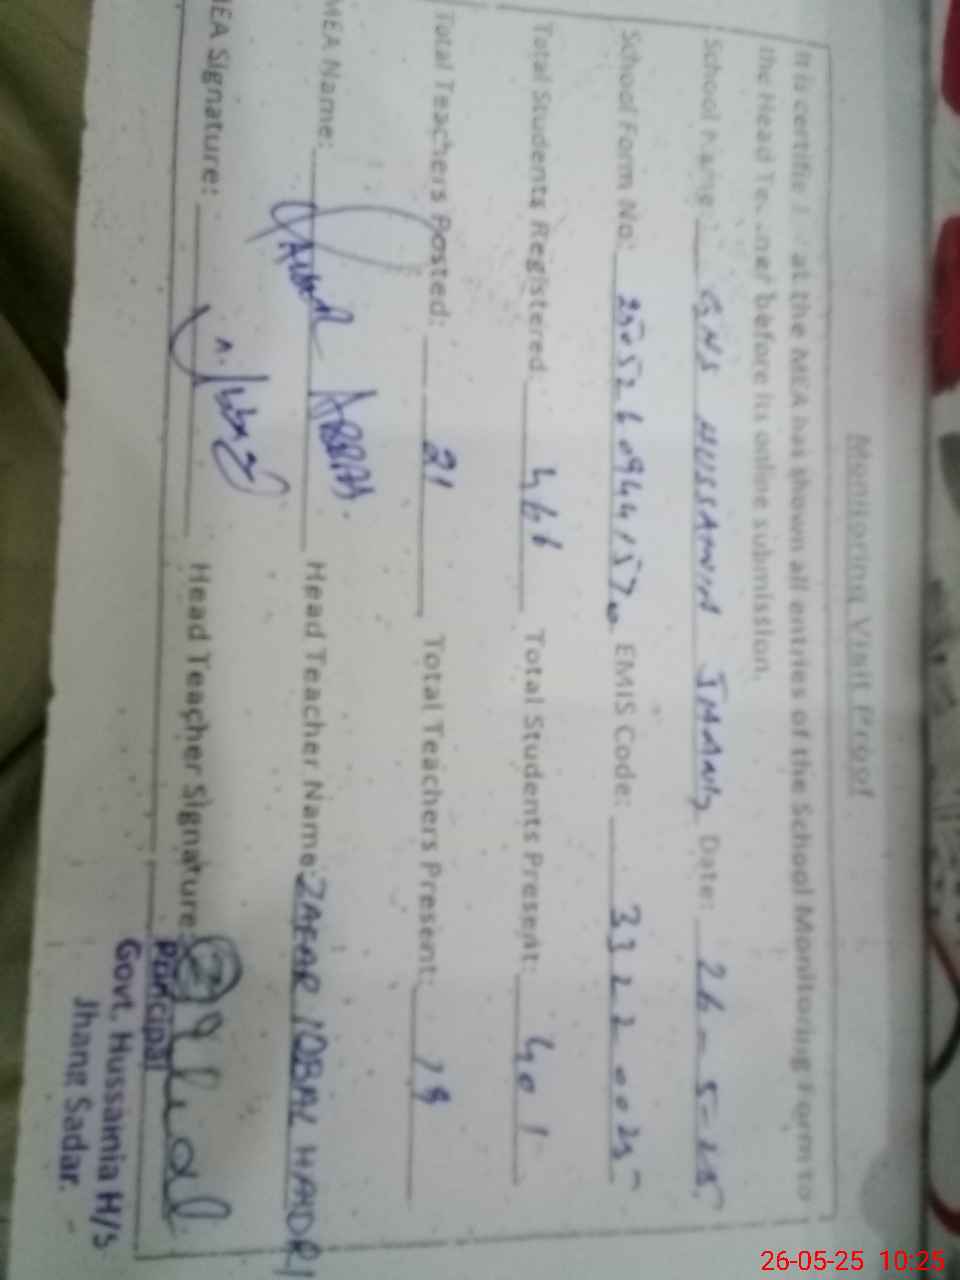 Monitoring Visit Proof
It is certified that the MEA has shown all entries of the School Monitoring Form to
the Head Teacher before its online submission.
School Name: GHS HUSSAINIA JHANG Date: 26-5-25
School Form No: EMIS Code: 33220025
Total Students Registered: 466 Total Students Present: 401
Total Teachers Posted: 21 Total Teachers Present: 19
MEA Name: ABBAS. Head Teacher Name: ZAFAR IQBAL HAIDRI
MEA Signature: Head Teacher Signature:
Principal
Govt. Hussainia H/S
Jhang Sadar.
26-05-25 10:25